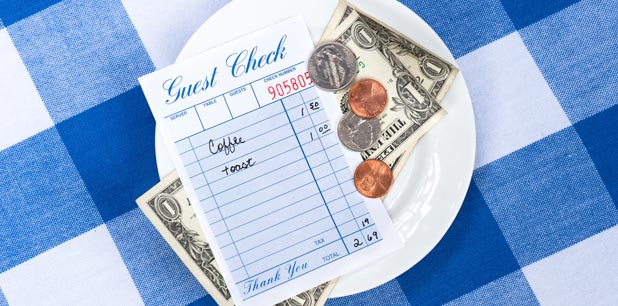 Guest Check
SERVER TABLE GUESTS CHECK NUMBER
905805
Coffee 1 50
toast 1 00
TAX 19
TOTAL 2 69
Thank You
1
1
ONE
THE